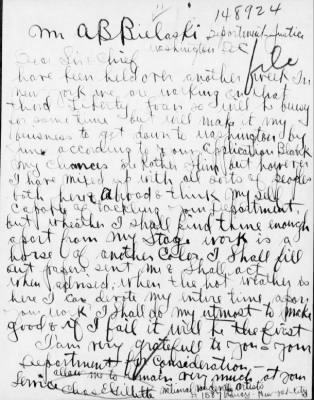 148924
Mr A B Bielaski
Department Justice
Washington D.C.
file
Dear Sir & Chief
have been held over another week in
new york we are working on that
third Liberty Loan so will be busy
for some time but will make it my
business to get down to Washington by
June according to your Application Blank
my chances are other thing but however
I have mixed up with all sorts of people
both here & abroad & think my self
capable of tackling your Department
but wheather I shall find time enough
apart from my stage work is a
horse of another Color, I shall fill
out papers sent me & shall act
when advised, when the hot weather is
here I can devote my intire time upon
your work I shall do my utmost to make
good & if I fail it will be the first
I am very grateful to you & your
Department for Consideration
allow me to remain very much at your
Service Chas E Gillette
national vaudeville artists
1587 Broadway New York City